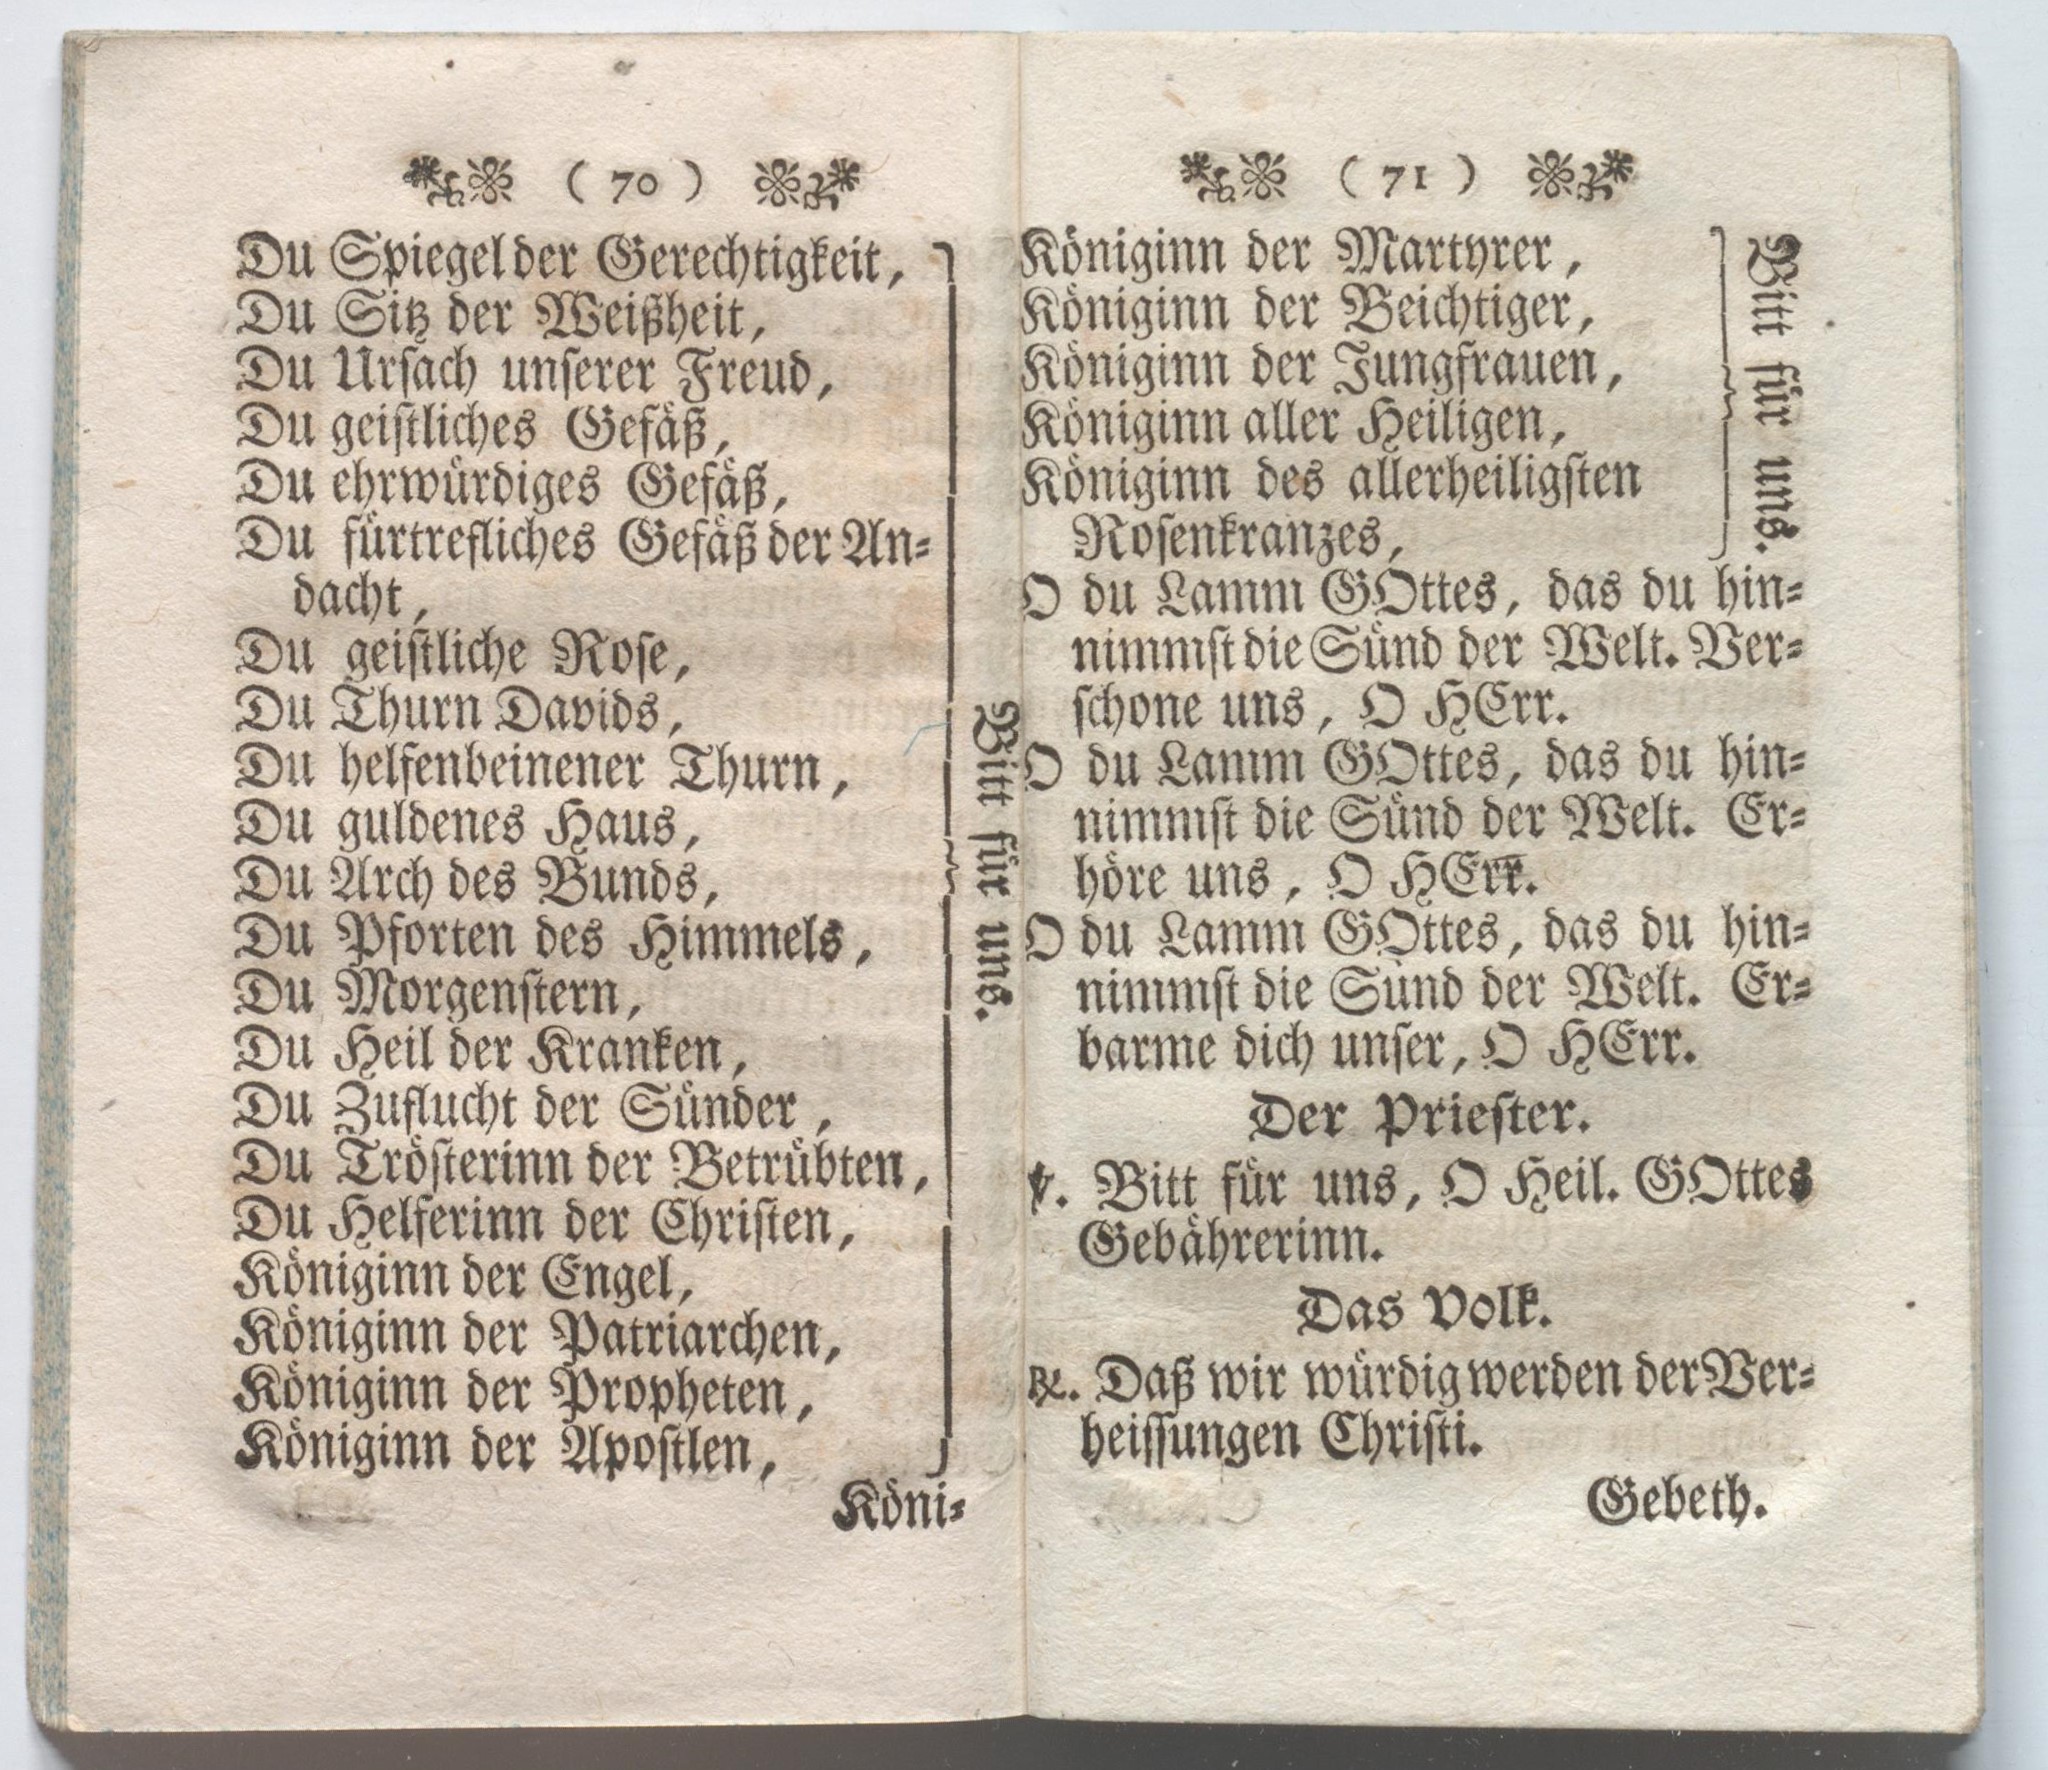 ( 70 )
Du Spiegel der Gerechtigkeit,
Du Sitz der Weißheit,
Du Ursach unserer Freud,
Du geistliches Gefäß,
Du ehrwürdiges Gefäß,
Du fürtrefliches Gefäß der An-
dacht,
Du geistliche Rose,
Du Thurn Davids,
Du helfenbeinener Thurn,
Du guldenes Haus,
Du Arch des Bunds,
Du Pforten des Himmels,
Du Morgenstern,
Du Heil der Kranken,
Du Zuflucht der Sünder,
Du Trösterinn der Betrübten,
Du Helferinn der Christen,
Königinn der Engel,
Königinn der Patriarchen,
Königinn der Propheten,
Königinn der Apostlen,
Bitt für uns.
Köni-
( 71 )
Königinn der Martyrer,
Königinn der Beichtiger,
Königinn der Jungfrauen,
Königinn aller Heiligen,
Königinn des allerheiligsten
Rosenkranzes,
Bitt für uns.
O du Lamm GOttes, das du hin-
nimmst die Sünd der Welt. Ver-
schone uns, O HErr.
O du Lamm GOttes, das du hin-
nimmst die Sünd der Welt. Er-
höre uns, O HErr.
O du Lamm GOttes, das du hin-
nimmst die Sünd der Welt. Er-
barme dich unser, O HErr.
Der Priester.
℣. Bitt für uns, O Heil. GOttes
Gebährerinn.
Das Volk.
℟. Daß wir würdig werden der Ver-
heissungen Christi.
Gebeth.